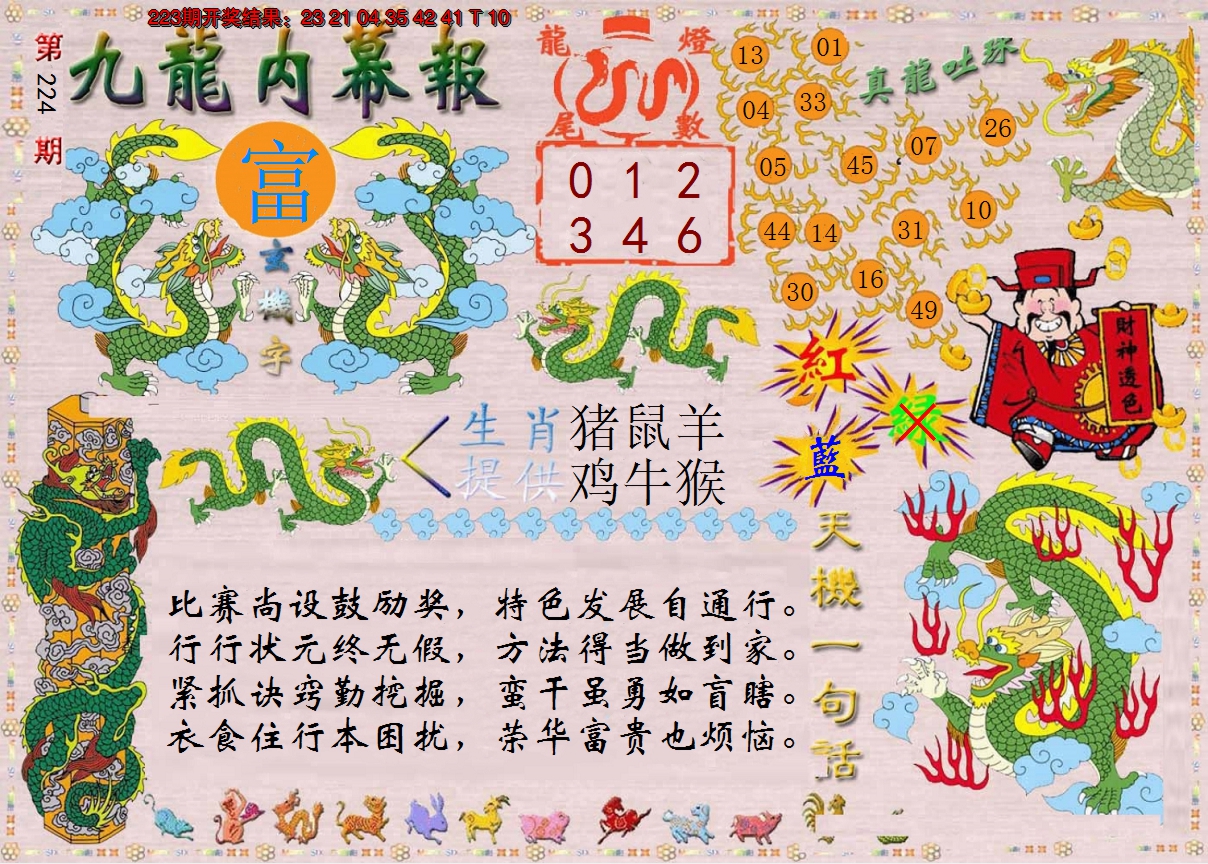 223期开奖结果：23 21 04 35 42 41 T 10
第
224
期
九龍内幕報
富
玄
機
字
龍 燈
尾 數
0 1 2
3 4 6
真龍吐珠
13
01
04
33
05
45
07
26
44
14
31
10
30
16
49
財神透色
紅
綠
藍
生肖 猪鼠羊
提供 鸡牛猴
天機一句話
比赛尚设鼓励奖，特色发展自通行。
行行状元终无假，方法得当做到家。
紧抓诀窍勤挖掘，蛮干虽勇如盲瞎。
衣食住行本困扰，荣华富贵也烦恼。